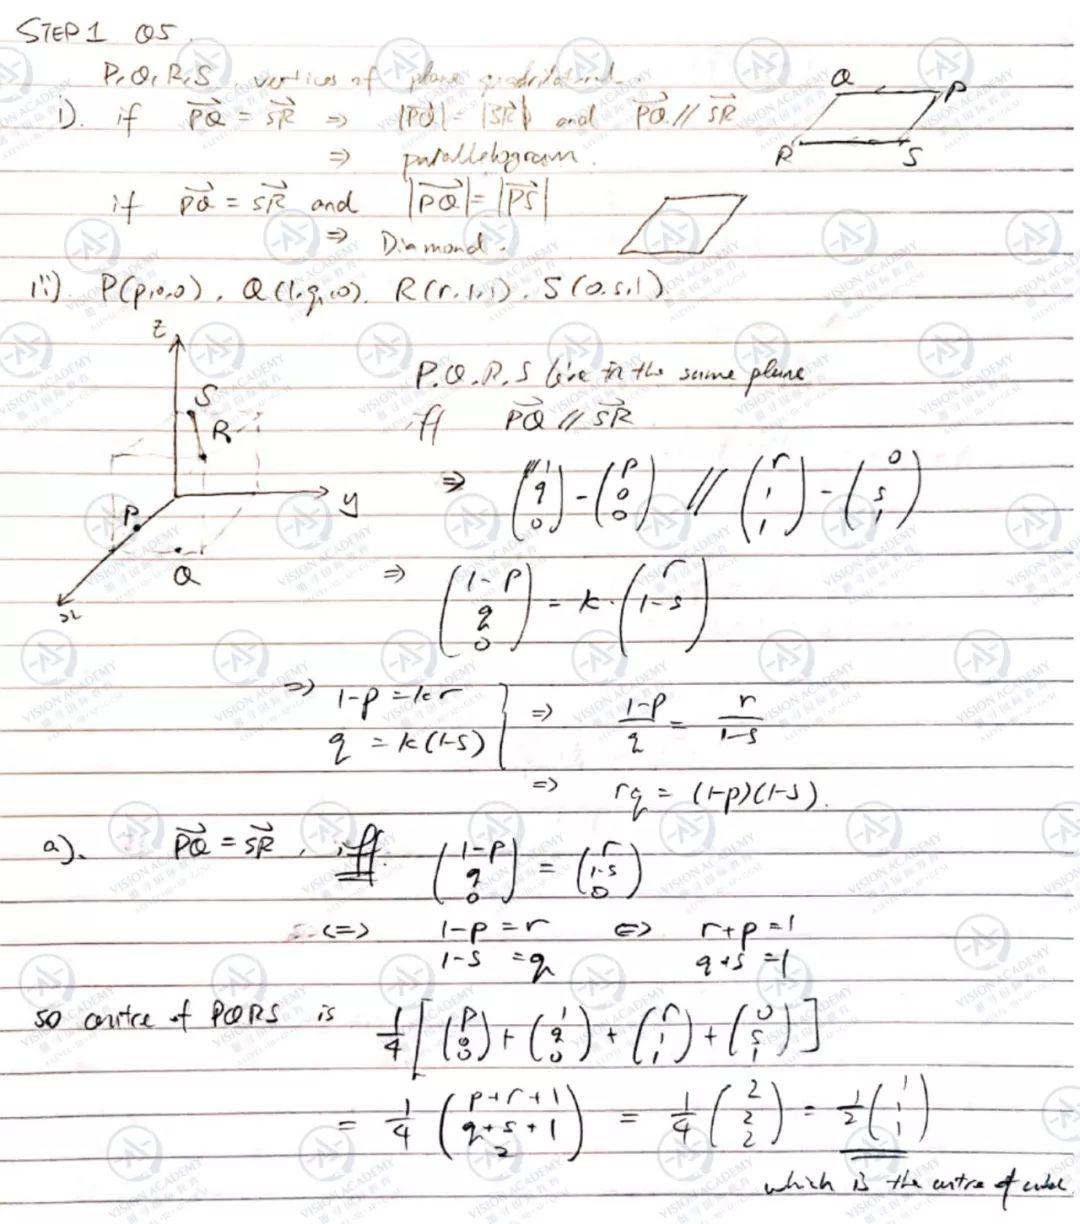 STEP 1 Q5.
P, Q, R, S, vertices of plane quadrilateral.
i). if \vec{PQ} = \vec{SR} ⇒ |\vec{PQ}| = |\vec{SR}| and \vec{PQ} // \vec{SR}
⇒ parallelogram.
Q P
R S
if \vec{PQ} = \vec{SR} and |\vec{PQ}| = |\vec{PS}|
⇒ Diamond.
ii). P(p,0,0), Q(1,q,0), R(r,1,1), S(0,s,1)
z
S
R
y
P
Q
x
P, Q, R, S lie in the same plane
iff \vec{PQ} // \vec{SR}
⇒ (1 q 0) - (p 0 0) // (r 1 1) - (0 s 1)
⇒ (1-p q 0) = k · (r 1-s)
⇒ 1-p = kr
q = k(1-s) } ⇒ (1-p)/q = r/(1-s)
⇒ rq = (1-p)(1-s).
a). \vec{PQ} = \vec{SR}, iff. (1-p q 0) = (r 1-s 0)
⇔ 1-p = r ⇔ r+p = 1
1-s = q q+s = 1
so centre of PQRS is 1/4 [ (p 0 0) + (1 q 0) + (r 1 1) + (0 s 1) ]
= 1/4 (p+r+1 q+s+1 2) = 1/4 (2 2 2) = 1/2 (1 1 1)
which is the centre of cube
VISION ACADEMY